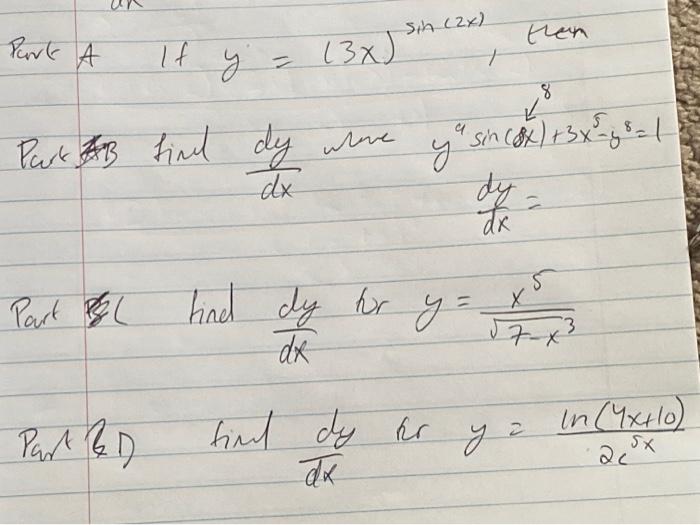 Part A If y = (3x)^sin(2x), then
8
Part B find dy/dx where y^9 sin(8x) + 3x^5 - y^8 = 1
dy/dx =
Part C find dy/dx for y = x^5/√(7-x^3)
Part D find dy/dx for y = ln(4x+10)/2e^5x